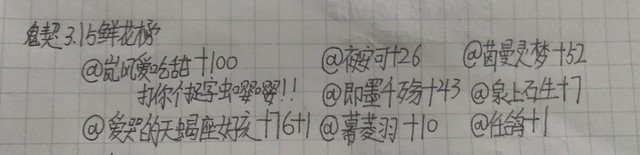 鬼契 3.15 鲜花榜
@岚风爱吃甜+100 @夜安可+26 @茵曼灵梦+52
打你个捉字虫嘤嘤!! @即墨千殇+243 @泉上石生+7
@爱哭的天蝎座女孩+76+1 @幕菱羽+10 @任鸽+1